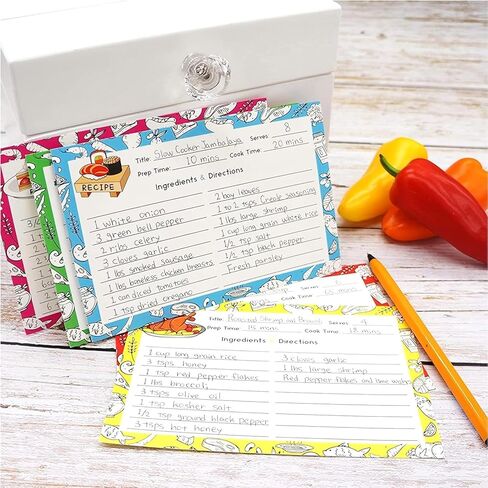 Title: Slow Cooker Jambalaya Serves: 8
Prep Time: 10 mins Cook Time: 20 mins
RECIPE
Ingredients & Directions
1 white onion
3 green bell pepper
2 ribs celery
3 cloves garlic
1 lbs smoked sausage
1 lbs boneless chicken breasts
1 can diced tomatoes
1 tsp dried oregano
2 bay leaves
1 to 2 tsps Creole seasoning
1 lbs large shrimp
1 cup long grain white rice
1/2 tsp salt
1/2 tsp black pepper
Fresh parsley
Title: Roasted Shrimp and Broccoli Serves:
Prep Time: 15 mins Cook Time: 18 mins
Ingredients & Directions
1 cup long grain rice
3 tsps honey
1 tsp red pepper flakes
1 lbs broccoli
3 tsps olive oil
1 tsp kosher salt
1/2 tsp ground black pepper
3 tsps hot honey
3 cloves garlic
1 lbs large shrimp
Red pepper flakes and lime